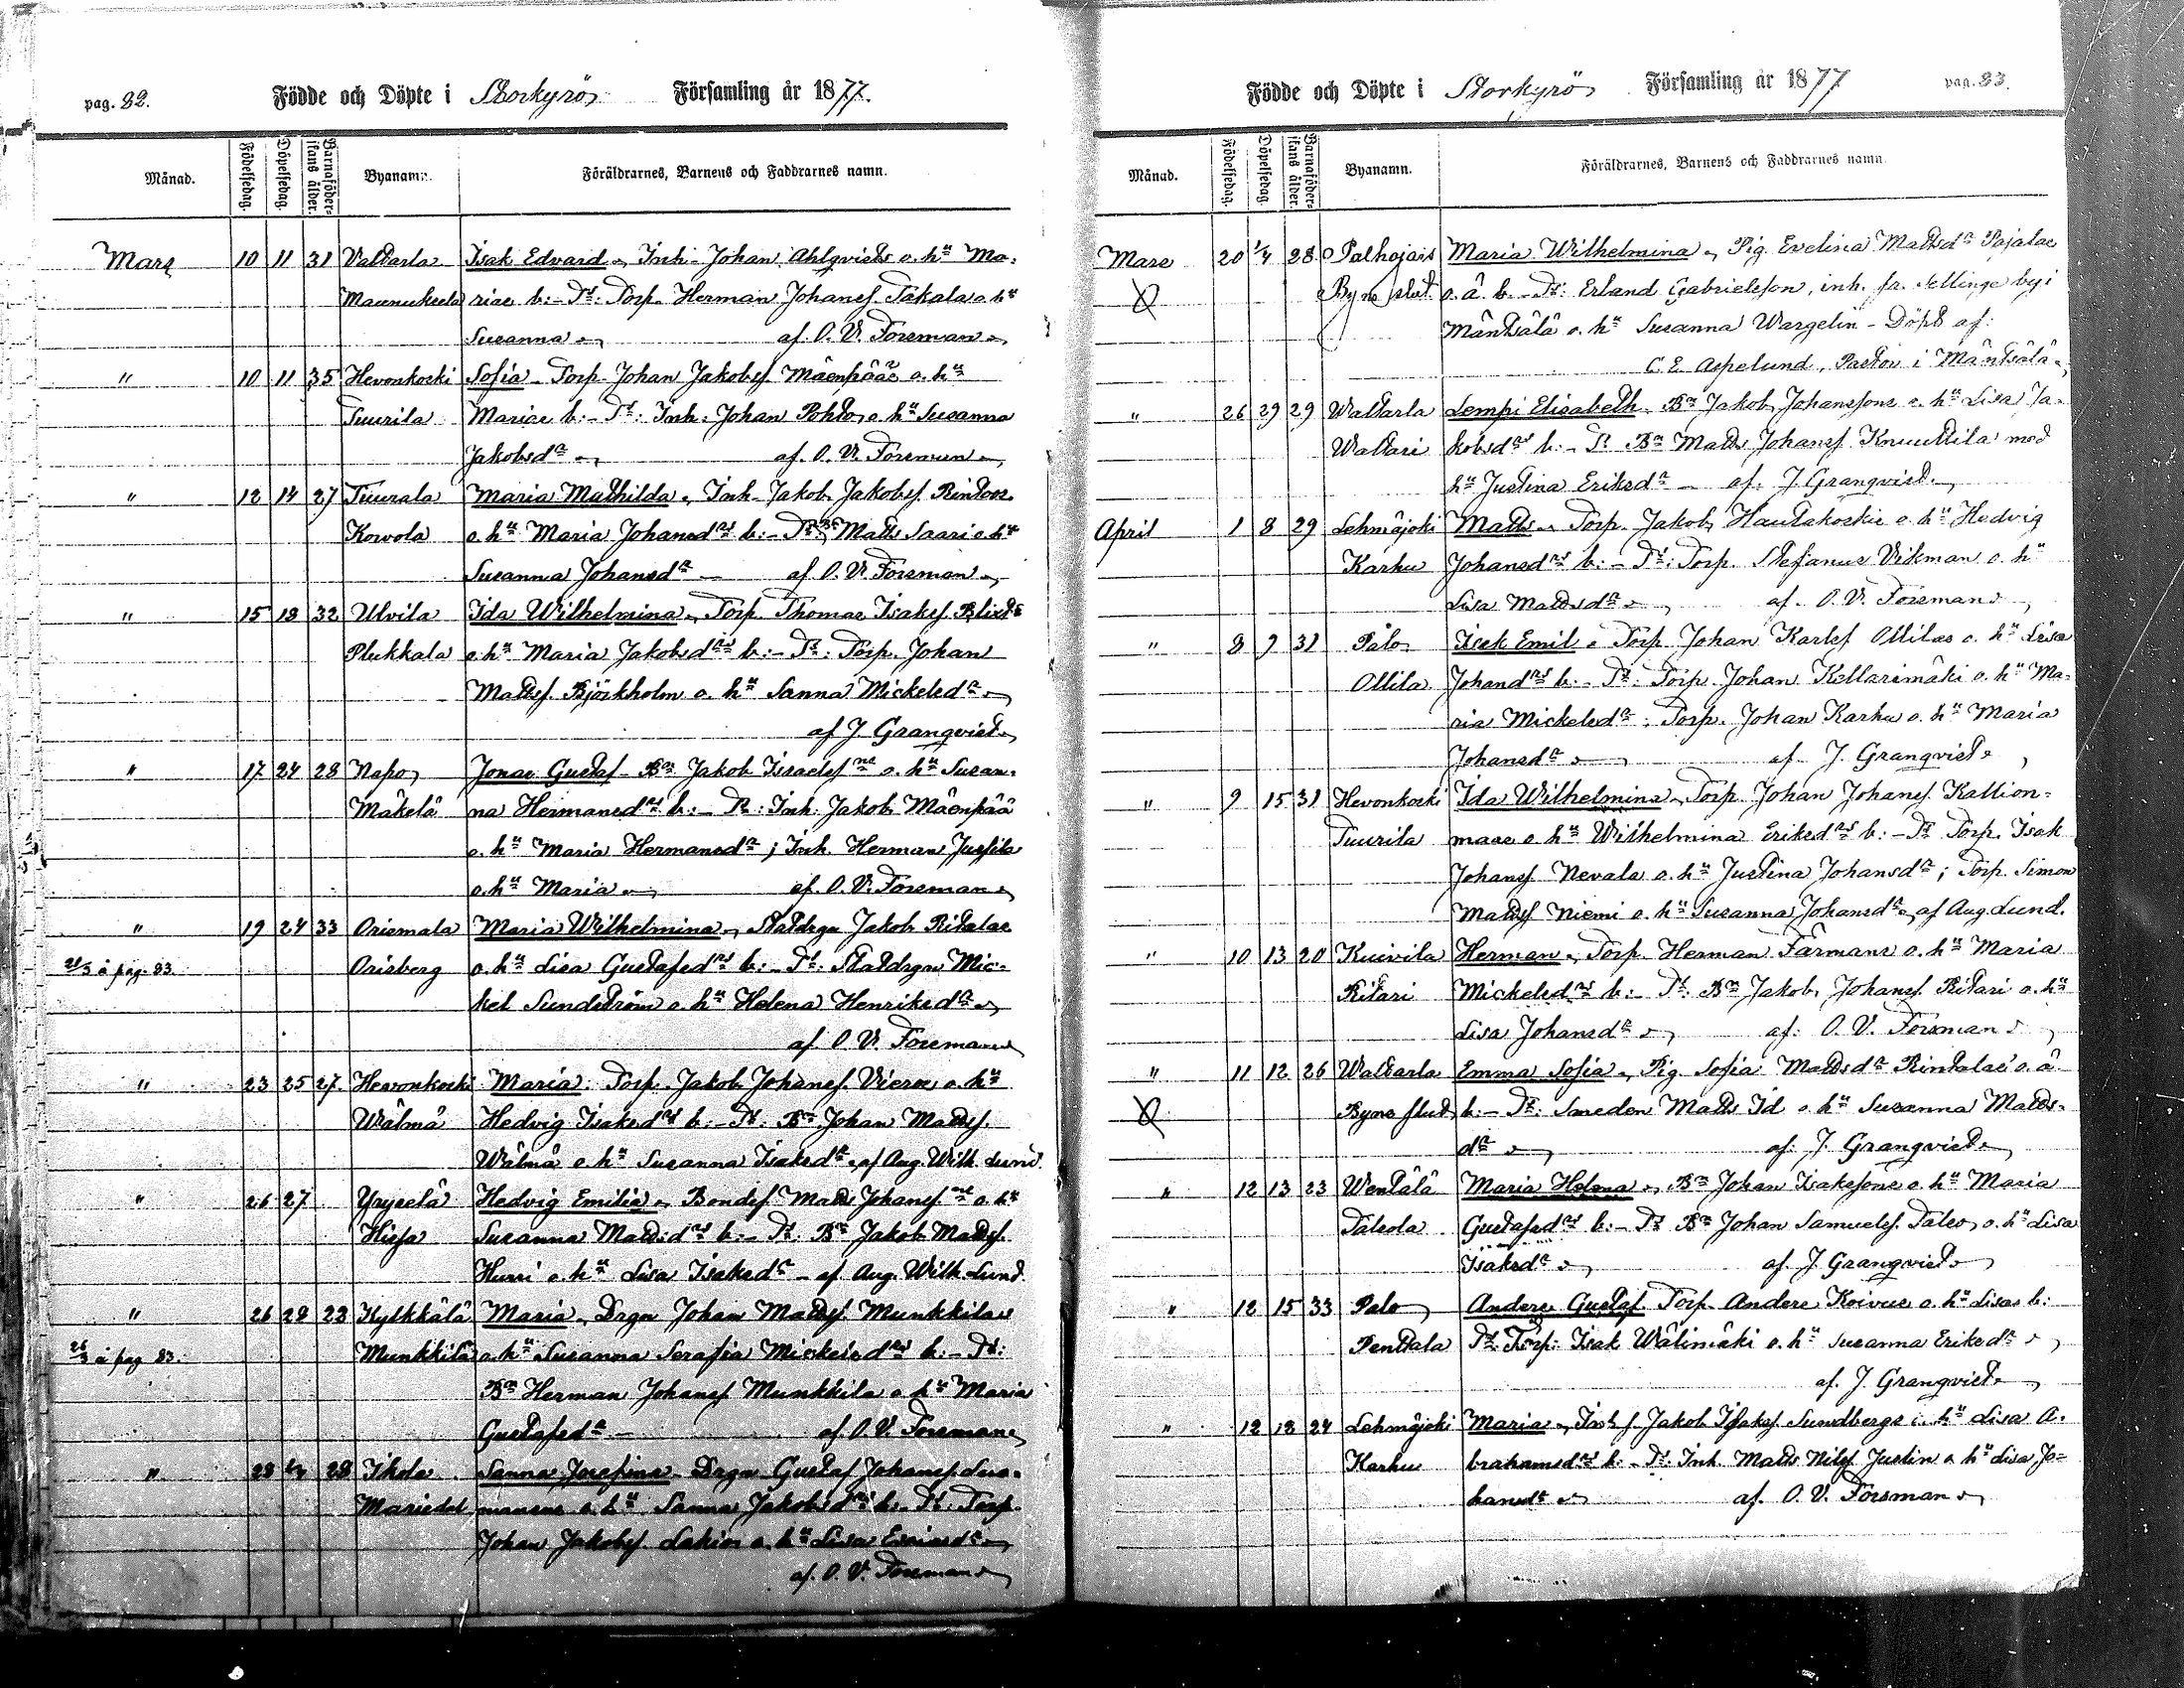 pag. 82. Födde och Döpte i Storkyrö Församling år 1877.
Månad. Födelsedag. Döpelsedag. Barnaföderskans ålder. Byanamn. Föräldrarnes, Barnens och Faddrarnes namn.
Mars 10 11 31 Valtarla Isak Edvard, Inh. Johan Ahlqvists o. hu Ma-
Maunuksela riae b:- Ts: Torp. Herman Johansf. Takala o. hu
Susanna af O. V. Forsman
" 10 11 35 Hevonkoski Sofia Torp. Johan Jakobsf. Mäenpääs o. hu
Tuurila Mariae b:- Ts: Inh: Johan Pohto o. hu Susanna
Jakobsdr af. O. V. Forsman
" 12 14 27 Tuurala Maria Mathilda, Inh. Jakob Jakobsf. Rintas
Korvola o. hu Maria Johansdrs b:- Ts: Matts Saari o. hu
Susanna Johansdr af O. V. Forsman
" 15 18 32 Ulvila Ida Wilhelmina, Torp. Thomas Isaksf. Blixts
Plukkala o. hu Maria Jakobsdrs b:- Ts: Torp. Johan
Mattsf. Björkholm o. hu Sanna Mickelsdr
af J. Granqvist
" 17 24 28 Napo Jonas Gustaf Bn Jakob Israelsf ns o. hu Susan-
Mäkelä na Hermansdrs b:- Ts: Inh. Jakob Mäenpää
o. hu Maria Hermansdr; Inh. Herman Jussila
o. hu Maria af. O. V. Forsman
" 19 24 33 Orismala Maria Wilhelmina, Statdrgn Jakob Ritalas
21/3 å pag. 83. Orisberg o. hu Lisa Gustafsdrs b:- Ts: Statdrgn Mic-
kel Sundström o. hu Helena Henriksdr
af. O. V. Forsman
" 23 25 27 Hevonkoski Maria Torp. Jakob Johansf. Vieras o. hu
Wälmä Hedvig Isaksdrs b:- Ts: Bn Johan Mattsf.
Wälmä o. hu Susanna Isaksdr, af Aug. Wilh. Lund.
" 26 27 Yryselä Hedvig Emilia, Bondes. Matts Johansf ns o. hu
Hissa Susanna Mattsdrs b:- Ts: Bn Jakob Mattsf.
Hurri o. hu Lisa Isaksdr - af Aug. Wilh. Lund.
" 26 28 23 Kylkkälä Maria, Drgn Johan Mattsf. Munkkilas
26/3 å pag 83. Munkkila o. hu Susanna Serafia Mickelsdrs b:- Ts:
Bn Herman Johansf. Munkkila o. hu Maria
Gustafsdr af. O. V. Forsman
" 28 1/4 28 Ikola Sanna Josefina Drgn Gustaf Johansf. Luo-
Mariedal manens o. hu Sanna Jakobsdrs b:- Ts: Torp.
Johan Jakobsf. Lakios o. hu Lisa Esaiasdr
af. O. V. Forsman
Födde och Döpte i Storkyrö Församling år 1877 pag. 83.
Månad. Födelsedag. Döpelsedag. Barnaföderskans ålder. Byanamn. Föräldrarnes, Barnens och Faddrarnes namn.
Mars 20 1/4 28 Palhojais Maria Wilhelmina, Pig. Evelina Mattsdr Pajalas
Byns slut. o. ä. b. - Ts: Erland Gabrielsson, inh. fr. Sellinge by i
Mäntsälä o. hu Susanna Wargelin - Döpt af:
C. E. Aspelund, Pastor i Mäntsälä
" 26 29 29 Waltarla Lempi Elisabeth. Bn Jakob Johanssons o. hu Lisa Ja-
Waltari kobsdrs b:- Ts Bn Matts Johansf. Knuuttila med
hu Justina Eriksdr - af. J. Granqvist.
April 1 8 29 Lehmäjoki Matts, Torp. Jakob Hautakoskis o. hu Hedvig
Karhu Johansdrs b:- Ts: Torp. Stefanus Vikman o. hu
Lisa Mattsdr af. O. V. Forsman
" 8 9 31 Palo Isak Emil, Torp. Johan Karlsf Ollilas o. hu Lisa
Ollila Johansdrs b. - Ts: Torp. Johan Kellarimäki o. hu Ma-
ria Mickelsdr: Torp. Johan Karhu o. hu Maria
Johansdr af. J. Granqvist
" 9 15 31 Hevonkoski Ida Wilhelmina, Torp. Johan Johansf. Kallion-
Tuurila maas o. hu Wilhelmina Eriksdrs b:- Ts Torp. Isak
Johansf. Nevala o. hu Justina Johansdr; Torp. Simon
Mattsf Niemi o. hu Susanna Johansdr, af Aug. Lund.
" 10 13 20 Kuivila Herman, Torp. Herman Färmans o. hu Maria
Ritari Mickelsdrs b:- Ts: Bn Jakob Johansf. Ritari o. hu
Lisa Johansdr af: O. V. Forsman
" 11 12 26 Waltarla Emma Sofia, Pig. Sofia Mattsdr Rintalas o. ä.
Byns slut b:- Ts: Smeden Matts Id o. hu Susanna Matts-
dr af: J. Granqvist
" 12 13 23 Wentälä Maria Helena, Bn Johan Isakssons o. hu Maria
Talsola Gustafsdrs b:- Ts Bn Johan Samuelsf. Talso, o. hu Lisa
Isaksdr af. J. Granqvist
" 12 15 33 Palo Anders Gustaf. Torp. Anders Koivus o. hu Lisas b:
Penttala Ts: Torp: Isak Wälimäki o. hu Susanna Eriksdr
af. J. Granqvist
" 12 18 24 Lehmäjoki Maria, Inh f. Jakob Isaksf. Sundbergs o. hu Lisa A-
Karhu brahamsdrs b:- Ts: Inh. Matts Nilsf Justin o. hu Lisa Jo-
hansdr af. O. V. Forsman